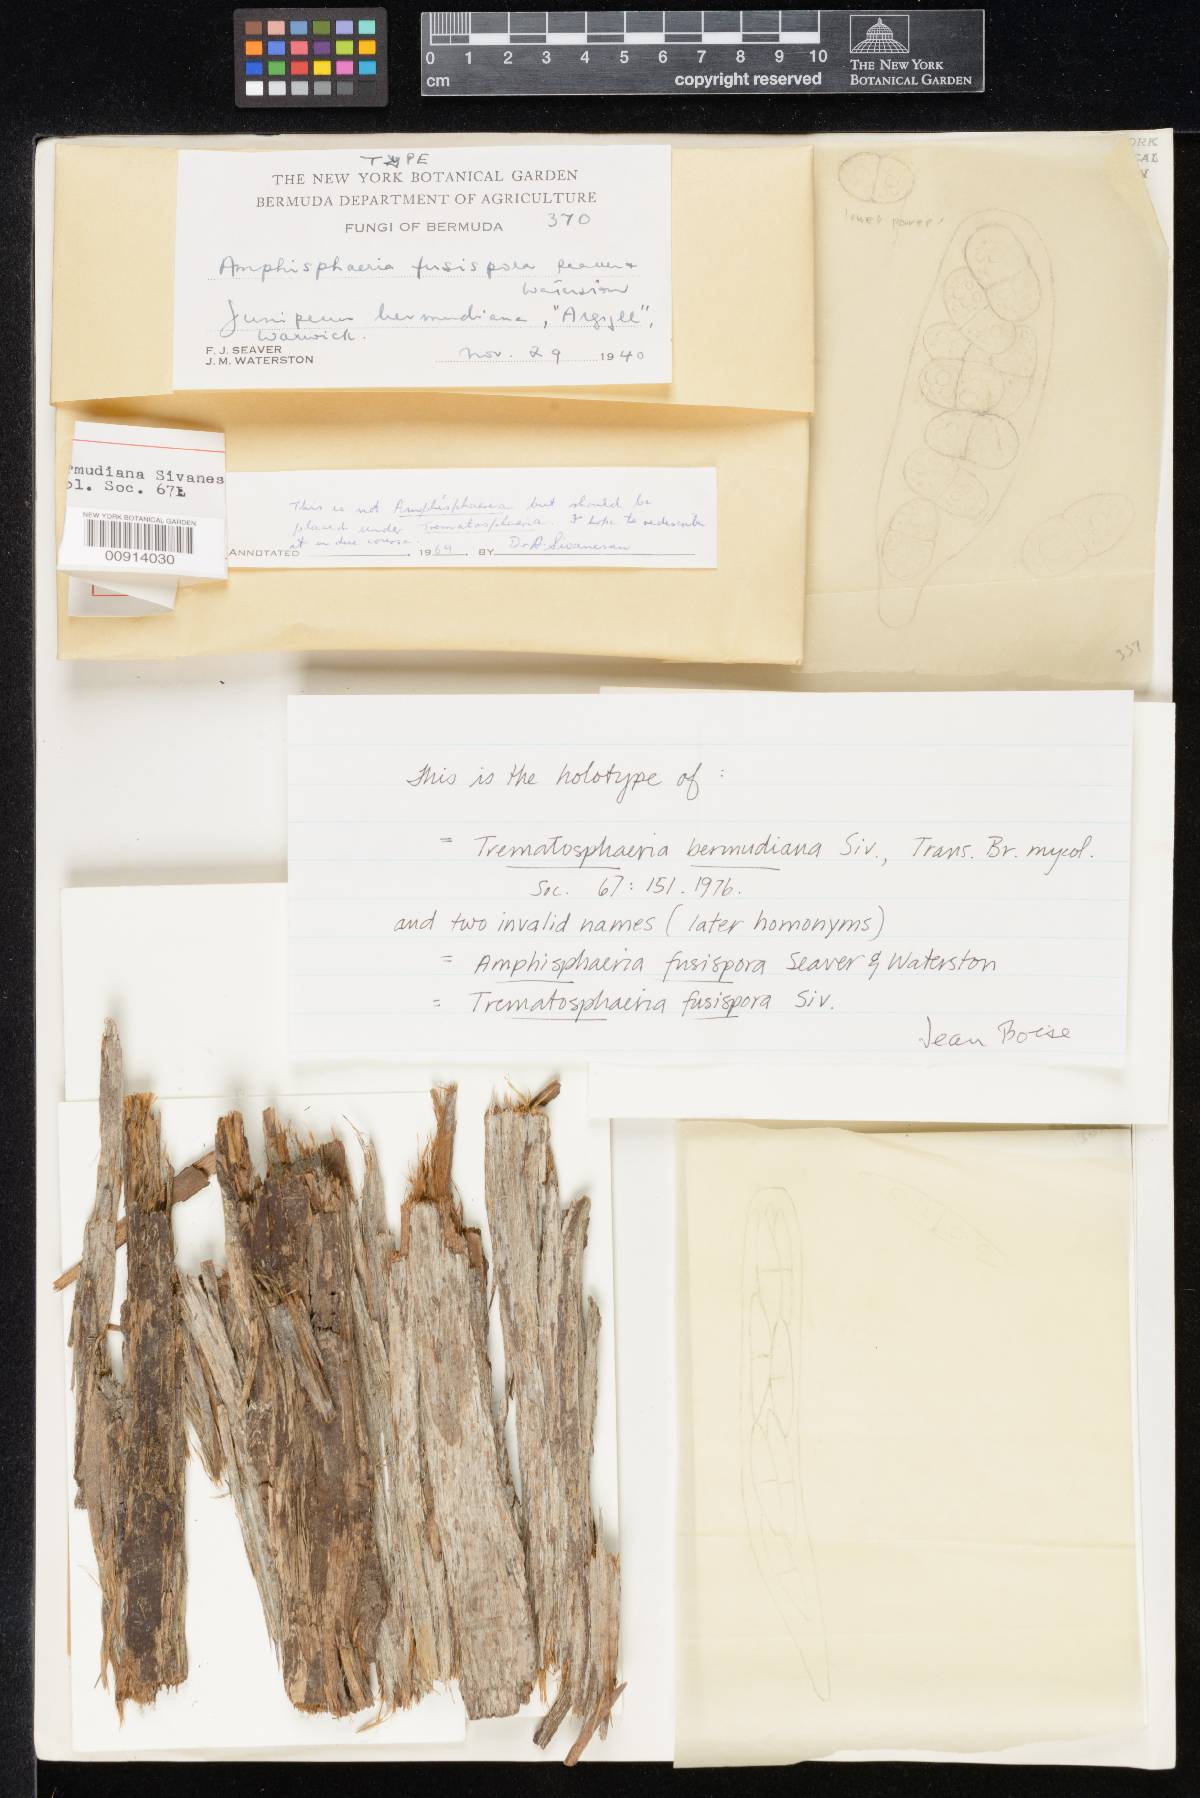 0 1 2 3 4 5 6 7 8 9 10
cm
copyright reserved
THE NEW YORK
BOTANICAL GARDEN
TYPE
THE NEW YORK BOTANICAL GARDEN
BERMUDA DEPARTMENT OF AGRICULTURE
FUNGI OF BERMUDA
370
Amphisphaeria fusispora Seaver &
Waterston
Juniperus bermudiana, "Argyle",
Warwick.
F. J. SEAVER
J. M. WATERSTON
Nov. 29 1940
rmudiana Sivanes
ol. Soc. 67:
NEW YORK BOTANICAL GARDEN
00914030
This is not Amphisphaeria but should be
placed under Trematosphaeria. I hope to redescribe
it in due course.
ANNOTATED 1969 BY Dr A. Sivanesan
ORK
CAL
N
lower power
337
This is the holotype of :
= Trematosphaeria bermudiana Siv., Trans. Br. mycol.
Soc. 67: 151. 1976.
and two invalid names (later homonyms)
= Amphisphaeria fusispora Seaver & Waterston
= Trematosphaeria fusispora Siv.
Jean Boise